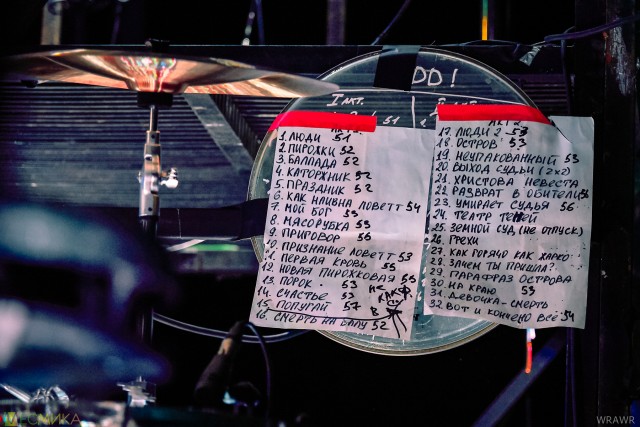 DD!
I АКТ.
51
1. ЛЮДИ 51
2. ПИРОЖКИ 52
3. БАЛЛАДА 52
4. КАТОРЖНИК 52
5. ПРАЗДНИК 52
6. КАК НАИВНА ЛОВЕТТ 54
7. МОЙ БОГ 53
8. МЯСОРУБКА 53
9. ПРИГОВОР 56
10. ПРИЗНАНИЕ ЛОВЕТТ 53
11. ПЕРВАЯ КРОВЬ 55
12. НОВАЯ ПИРОЖКОВАЯ 55
13. ПОРОК 53
14. СЧАСТЬЕ 53
15. ПОПУГАЙ 57
16. СМЕРТЬ НА БАЛУ 52
НЕ КАК В
АКТ 2
17. ЛЮДИ 2 53
18. ОСТРОВ 53
19. НЕУПАКОВАННЫЙ 53
20. ВЫХОД СУДЬИ (2x2)
21. ХРИСТОВА НЕВЕСТА
22. РАЗВРАТ В ОБИТЕЛИ 56
23. УМИРАЕТ СУДЬЯ 56
24. ТЕАТР ТЕНЕЙ
25. ЗЕМНОЙ СУД (НЕ ОТПУСК)
26. ГРЕХИ
27. КАК ГОРЯЧО КАК ЖАРКО
28. ЗАЧЕМ ТЫ ПРИШЛА?
29. ПАРАФРАЗ ОСТРОВА
30. НА КРАЮ 53
31. ДЕВОЧКА-СМЕРТЬ
32. ВОТ И КОНЧЕНО ВСЁ 54
WRAWR